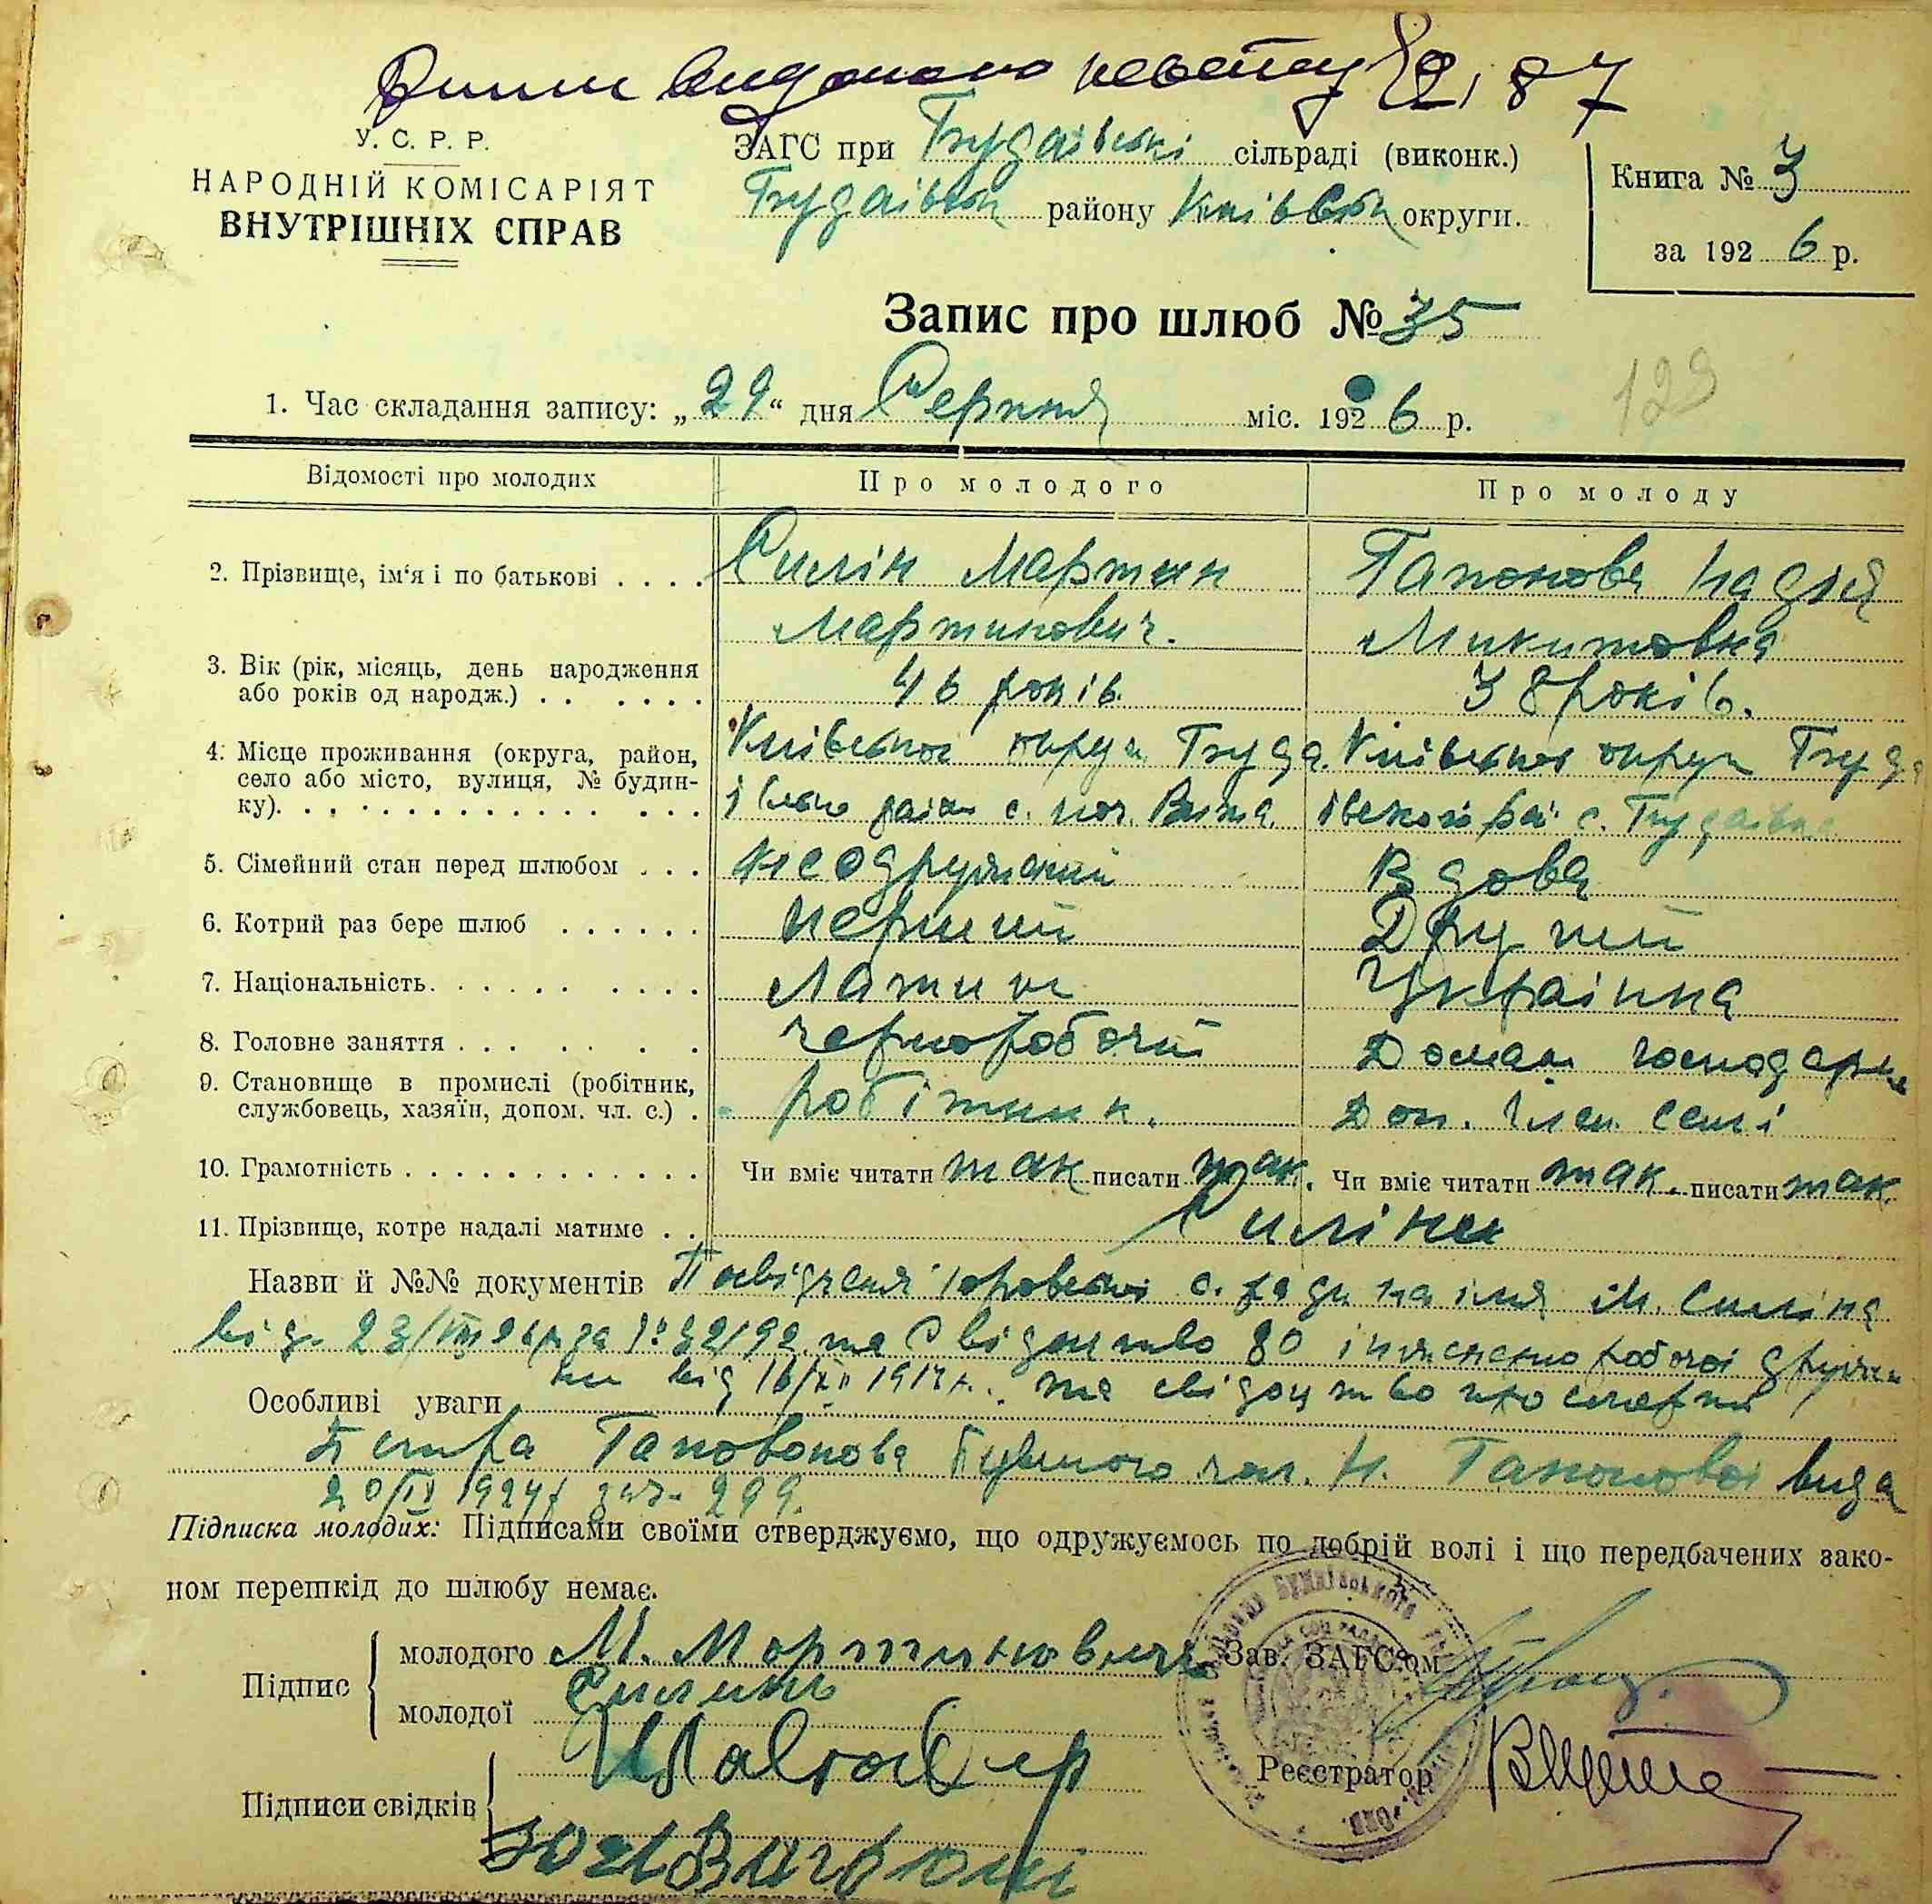 У. С. Р. Р.
НАРОДНІЙ КОМІСАРІЯТ
ВНУТРІШНІХ СПРАВ
ЗАГС при Будаївські сільраді (виконк.)
Будаівськ району Київськ округи.
Книга № 3
за 1926 р.
Запис про шлюб № 35
1. Час складання запису: „29“ дня Серпня міс. 1926 р.
129
Відомості про молодих
Про молодого
Про молоду
2. Прізвище, ім'я і по батькові
Силін Мартин
Мартинович.
Гапонова Надія
Микитовна
3. Вік (рік, місяць, день народження
або років од народж.)
46 років.
38 років.
4. Місце проживання (округа, район,
село або місто, вулиця, № будин-
ку).
Київської округи Буда
івськ район с. поч. Вита.
Київської округи Буда
івской рай с. Будаівка
5. Сімейний стан перед шлюбом
неодружений
Вдова
6. Котрий раз бере шлюб
перший
Другий
7. Національність.
Латиш
Українка
8. Головне заняття
чернробочий
Домаш господарка
9. Становище в промислі (робітник,
службовець, хазяїн, допом. чл. с.)
робітник.
Доп. член семі
10. Грамотність
Чи вміє читати так писати так.
Чи вміє читати так. писати так
11. Прізвище, котре надалі матиме
Силіни
Назви й №№ документів с. ради на імя М. Силіна
від 23/VIII за № 3292 та Свідоцтво 80 робочоі дружи
Особливі уваги ни від 16/XII 1917 р. та свідоцтво про смерть
Петра бувшого чол. Н. Гапоновоі вида
20/IX 1924 р за № 299.
Підписка молодих: Підписами своїми стверджуємо, що одружуємось по добрій волі і що передбачених зако-
ном перешкід до шлюбу немає.
Підпис
молодого М. Мортинович
Силинь
молодої
Підписи свідків
Зав. ЗАГС'ом
Реєстратор